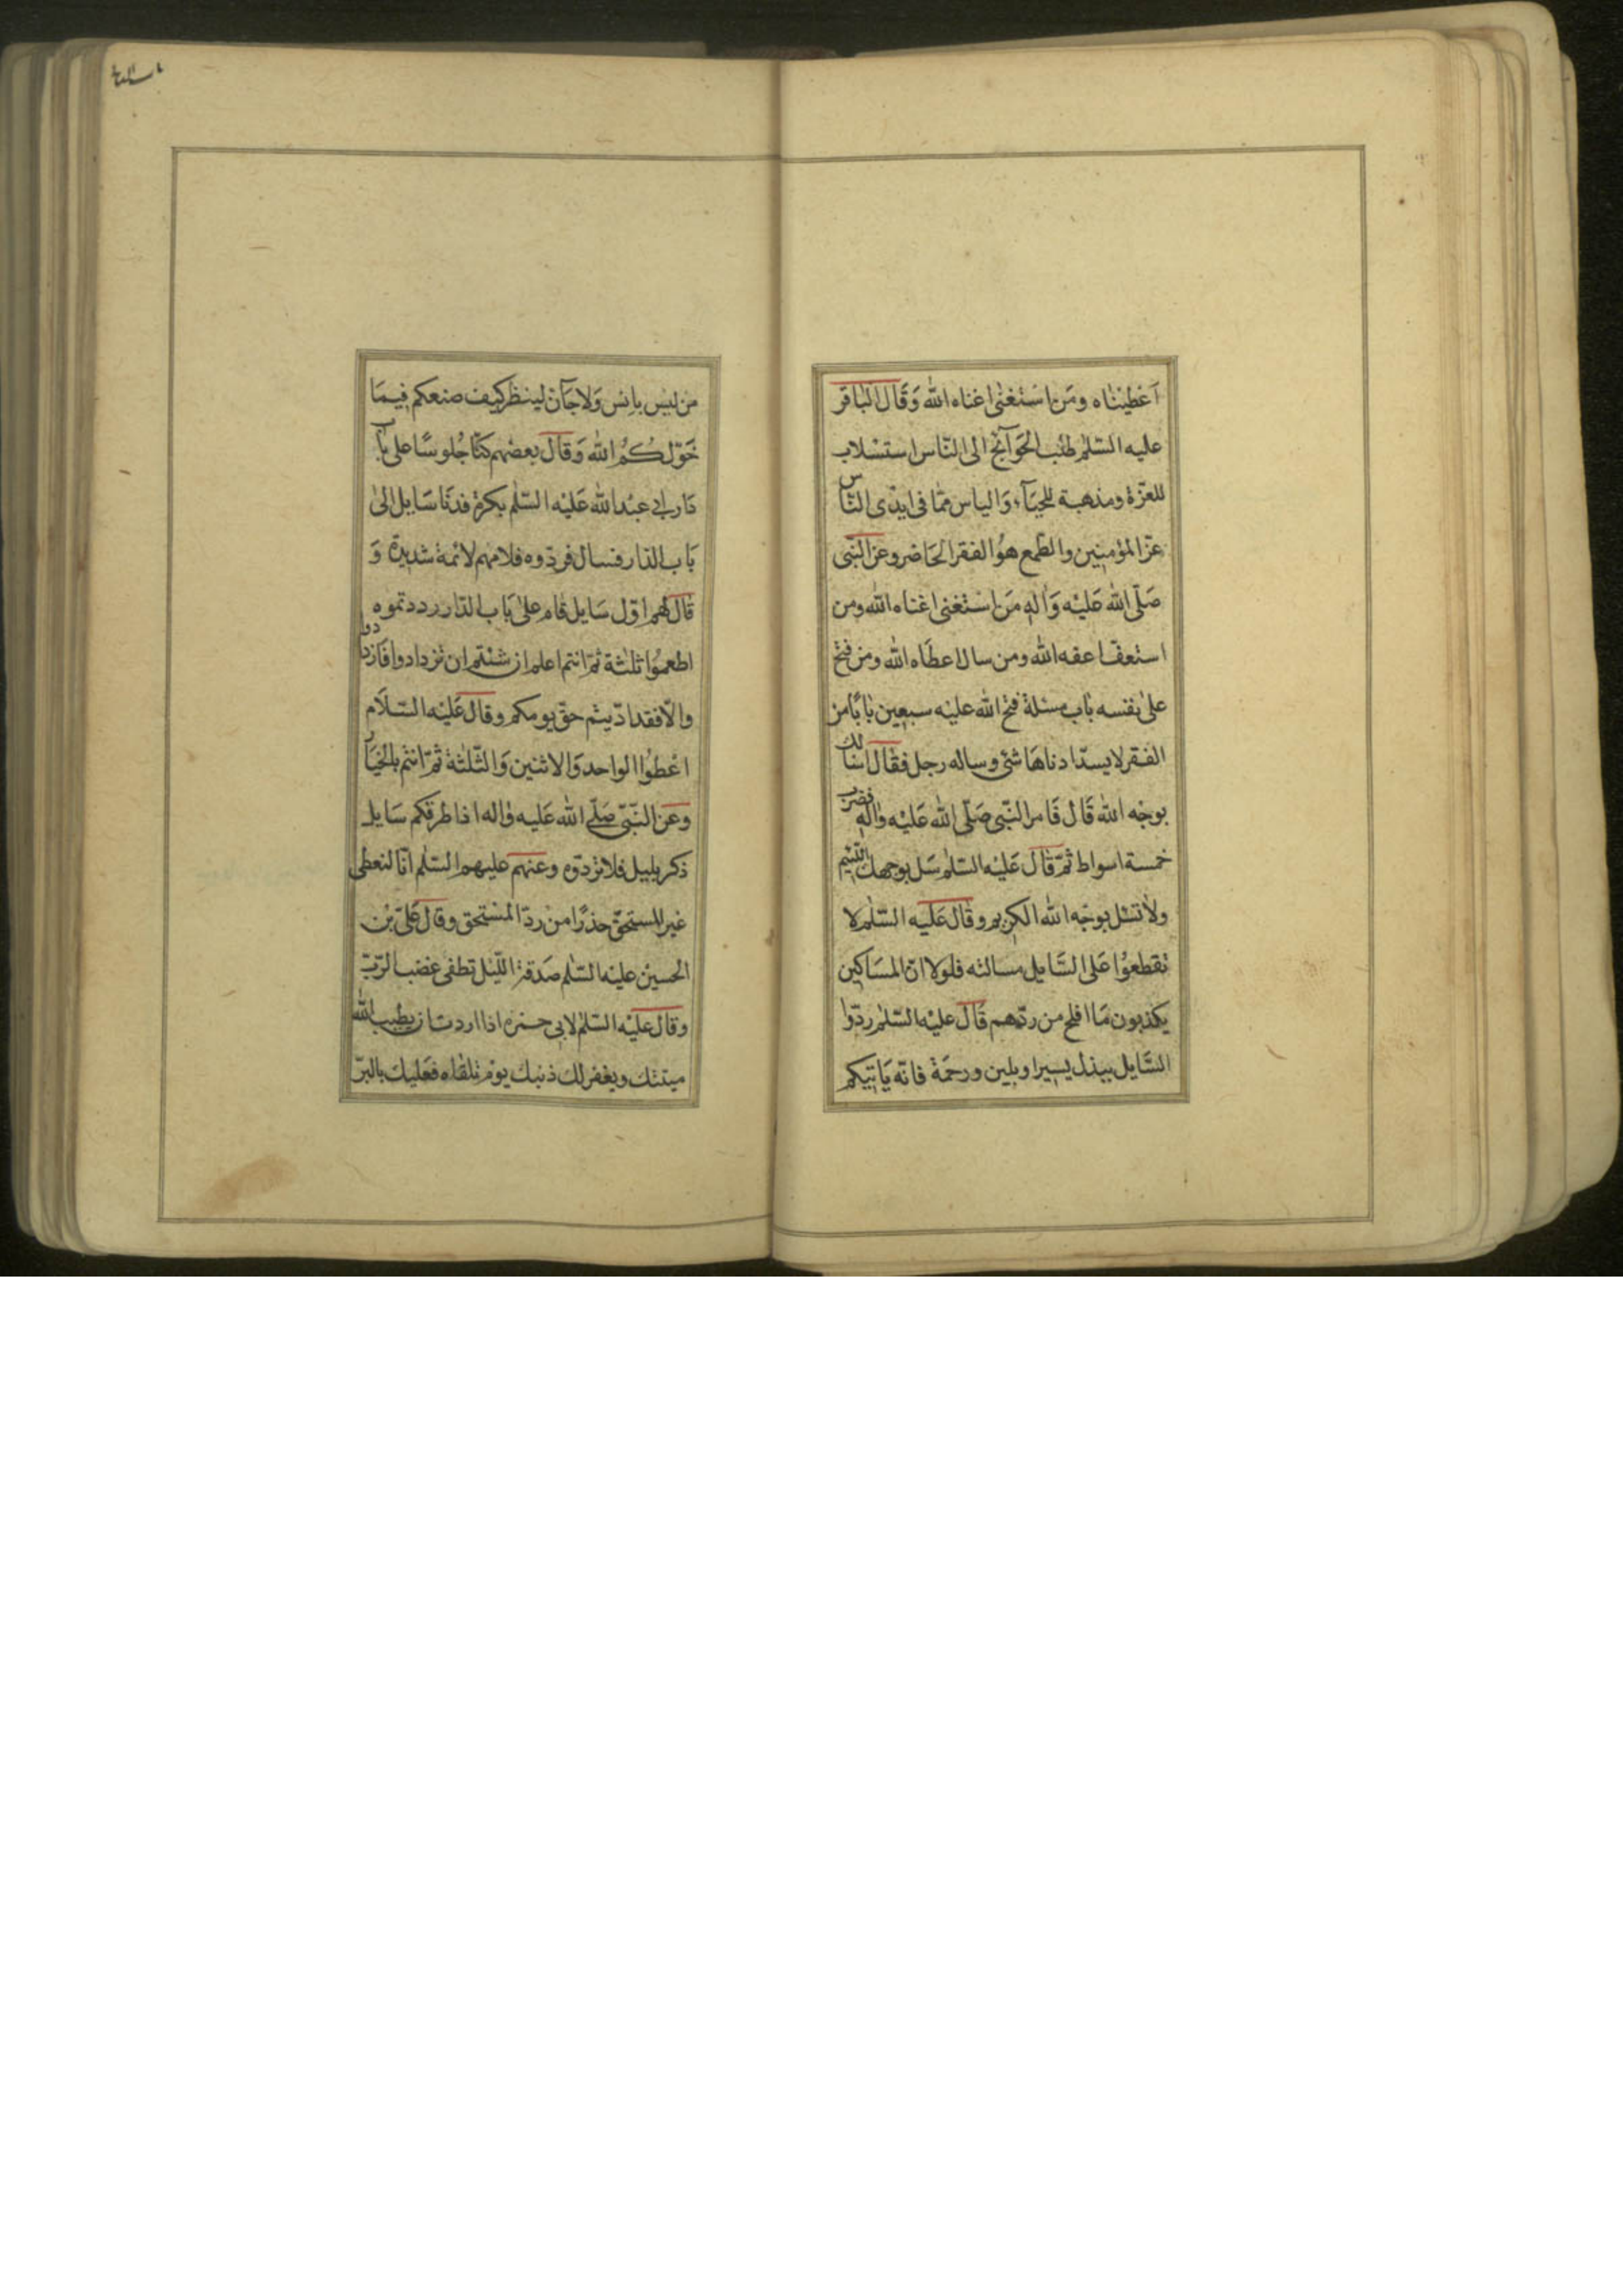 اَعْطَيْنَاه ومَن اسْتَغْنٰى اغناه الله وَقَالَ البَاقر
عليه السّلم طلب الحَوَآئج الى النّاس استسْلاب
للعزّة ومذهبة للحيَآء وَالياس ممّا فى ايدى النّاس
عزّ المؤمنِين والطّمع هوُ الفقر الحَاضر وعن النّبى
صَلّى الله عَليْه وَاله مَن اسْتغنى اغناه الله ومن
استعفّ اعفه الله ومن سال اعطَاه الله ومن فتح
على نفسه بَاب مسئلة فتح الله عليْه سبعين بَابًا من
الفقر لا يسدّ ادناهَا شئ وساله رجل فقَال اسالك
بوجْه الله قَال فَامر النّبى صَلّى الله عَليْه واله فضرب
خمسة اسواط ثمّ قَال عَليْه السّلم سَل بوجهك اللّئيم
ولا تسْئل بوجْه الله الكريم وقَال عَليْه السّلم لا
تقطعوُا عَلى السَّايل مسالته فلولا انّ المسَاكين
يكذبون مَا افلح من ردّهم قَال عليْه السّلم ردّوا
السَّايل ببذل يسيرا وبلين ورحمَة فانّه يَاتيكم
من ليْس باِنْس وَلا جَآنّ لينظر كيف صنعكم فيمَا
خَوّلكُمُ الله وَقَالَ بعضهم كنّا جُلوسًا على باب
دَار ابى عبْد الله عَليْه السّلم بكرة فدنَا سَايل الىٰ
بَاب الدّار فسال فردّوه فلامهم لائمة شديدة وَ
قَال لهم اوّل سَايل قام علىٰ بَاب الدّار رددتموه
اطعموُا ثلثة ثمّ انتم اعلم ان شئتم ان تزدادوا فَازدادوا
والّا فقد ادّيتم حقّ يومكم وقال عَليْه السّلَام
اعْطوا الواحد وَالاثنين وَالثّلثة ثمّ انتم بالخيَار
وعَن النّبّى صَلّى الله عَليه واله اذا طرقكم سَايل
ذكر بليل فلا تردّوه وعنهم عليهم السّلم انّا لنعطى
غير المستحقّ حذرًا من ردّ المسْتحق وقال عَلىّ بْن
الحسين عليْه السّلم صَدقة اللّيْل تطفى غضب الرّبّ
وقال عليْه السّلم لابى حمزه اذا اردت ان يطيب الله
ميتتك ويغفر لك ذنبك يوْم تلقاه فعَليك بالبرّ